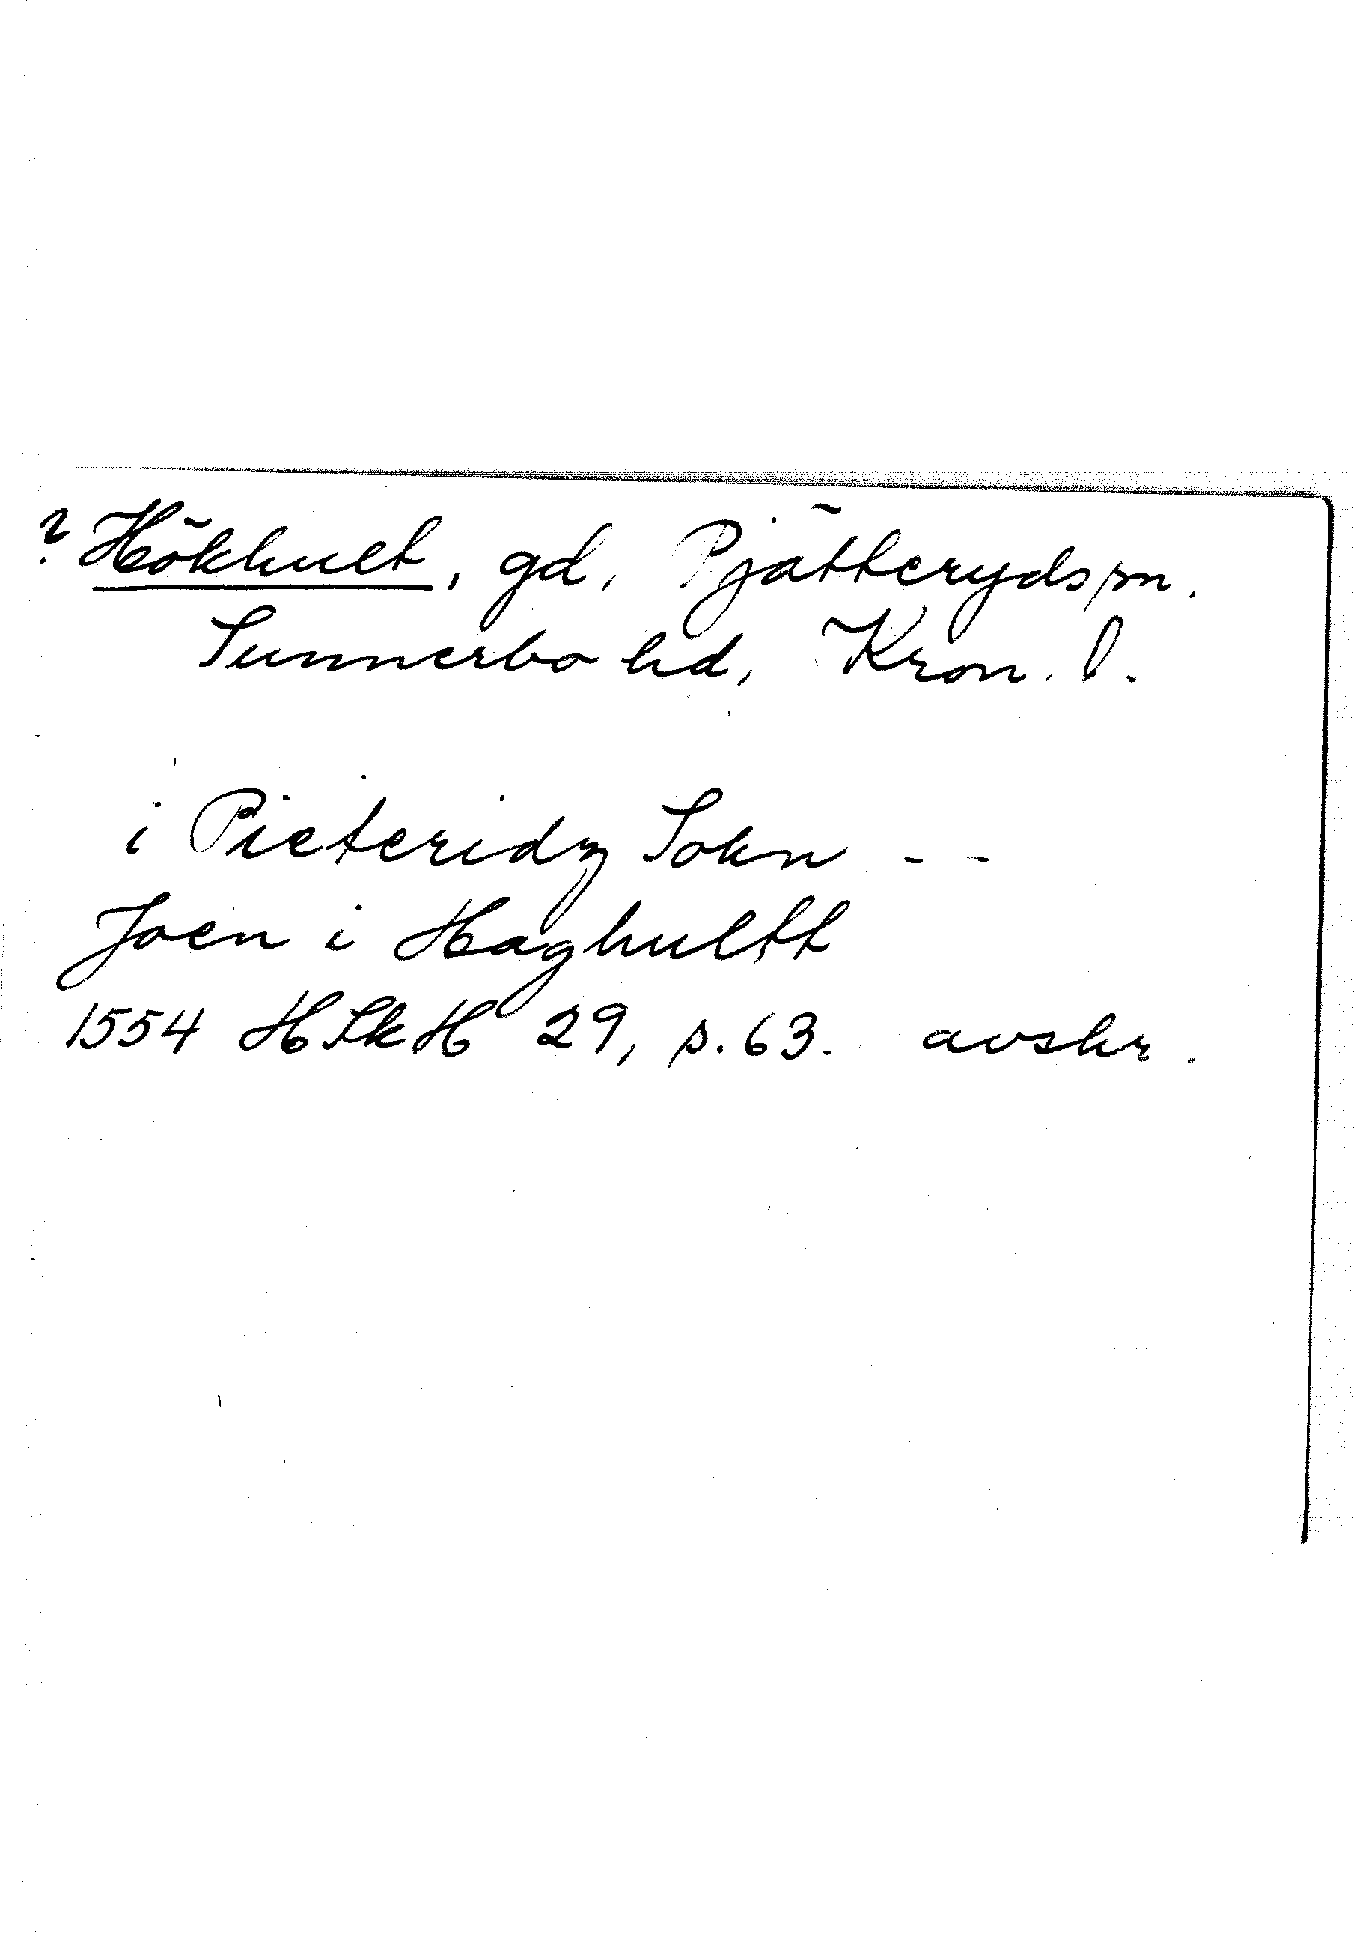 ? Hökhult, gd, Pjätteryds sn.
Sunnerbo hd, Kron. l.
i Pieteridz Sokn - -
Joen i Haghultt
1554 HSkH 29, s. 63. avskr.